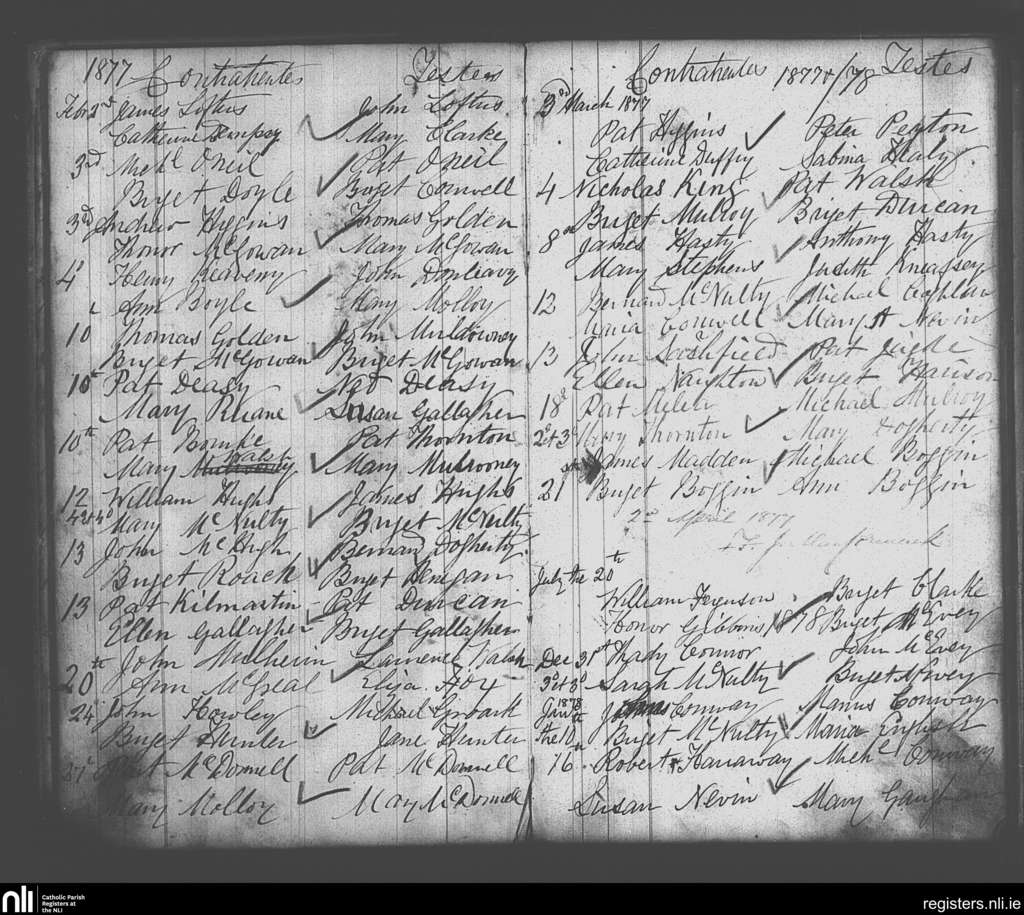 1877 Contrahentes Testes
Febr 2nd James Loftus John Loftus
Catherine Dempsy Mary Clarke
3rd Michl O'Neil Pat O'Neil
Briget Doyle Briget Conwell
3rd Andrew Higgins Thomas Golden
Honor McGowan Mary McGowan
4 Henny Reaveny John Donleavy
Ann Boyle Mary Molloy
10 Thomas Golden John Muldowney
Briget McGowan Briget McGowan
10th Pat Deasy Nat Deasy
Mary Ruane Susan Gallagher
10th Pat Bourke Pat Thornton
Walsh
Mary Mary Mulrooney
12 William Hughs James Hughs
Mary McNulty Briget McNulty
13 John McHugh Bernard Dogherty
Briget Roack Briget
13 Pat Kilmartin Pat Duncan
Ellen Gallagher Briget Gallagher
20th John Mulherin Laurence Walsh
Ann McGreal Eliza Foy
24 John Howley Michael Groark
Briget Hunter Jane Hunter
Pat McDonnell Pat McDonnell
Mary Molloy Mary McDonnell
Contrahentes 1877+/78 Testes
3rd March 1877
Pat Higgins Peter Peyton
Catherine Duffy Sabina Healy
4 Nicholas King Pat Walsh
Briget Mulroy Briget Duncan
8th James Hasty Anthony Hasty
Mary Stephens Judith Kneafsey
12 Bernard McNulty Michael Coghlan
Conwell Mary A Nevin
13 John Pat Judge
Ellen Naughton Briget Harison
18 Pat Michael Mulroy
Mary Thornton Mary Dogherty
James Madden Michael Boggin
21st Briget Boggin Ann Boggin
2nd April 1877
July the 20th
William Ferguson Briget Clarke
Honor Gibbons 1878 Briget McEvey
Dec 31st Thady Connor John McEvey
Sarah McNulty Briget
1878
James Conway Manus Conway
the 10th Briget McNulty Maria Enright
16th Robert Hanaway Michl Conway
Susan Nevin Mary Gaughan
nli
Catholic Parish
Registers at
the NLI
registers.nli.ie